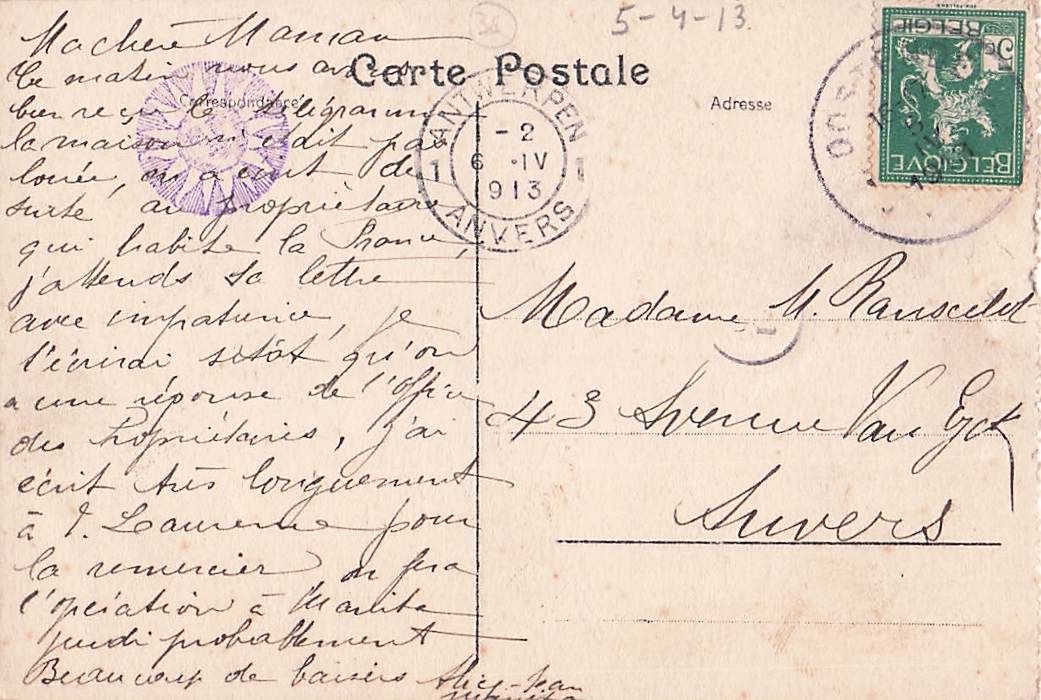 5-4-13
38
Carte Postale
Correspondance
Adresse
ANTWERPEN
1 1
-2
6 IV
913
ANVERS
BELGIË
5
BELGIQUE
Ma chère Maman
Ce matin nous avons
bien reçu le télégramme
la maison n'était pas
louée, on a écrit de
suite au propriétaire
qui habite la France,
j'attends sa lettre
avec impatience, je
t'écrirai sitôt qu'on
a une réponse de l'office
des Propriétaires, j'ai
écrit très longuement
à T. Laurence pour
la remercier, on fera
l'opération à Marita
jeudi probablement
Beaucoup de baisers
Madame M.
43 Avenue Van Eyck
Anvers